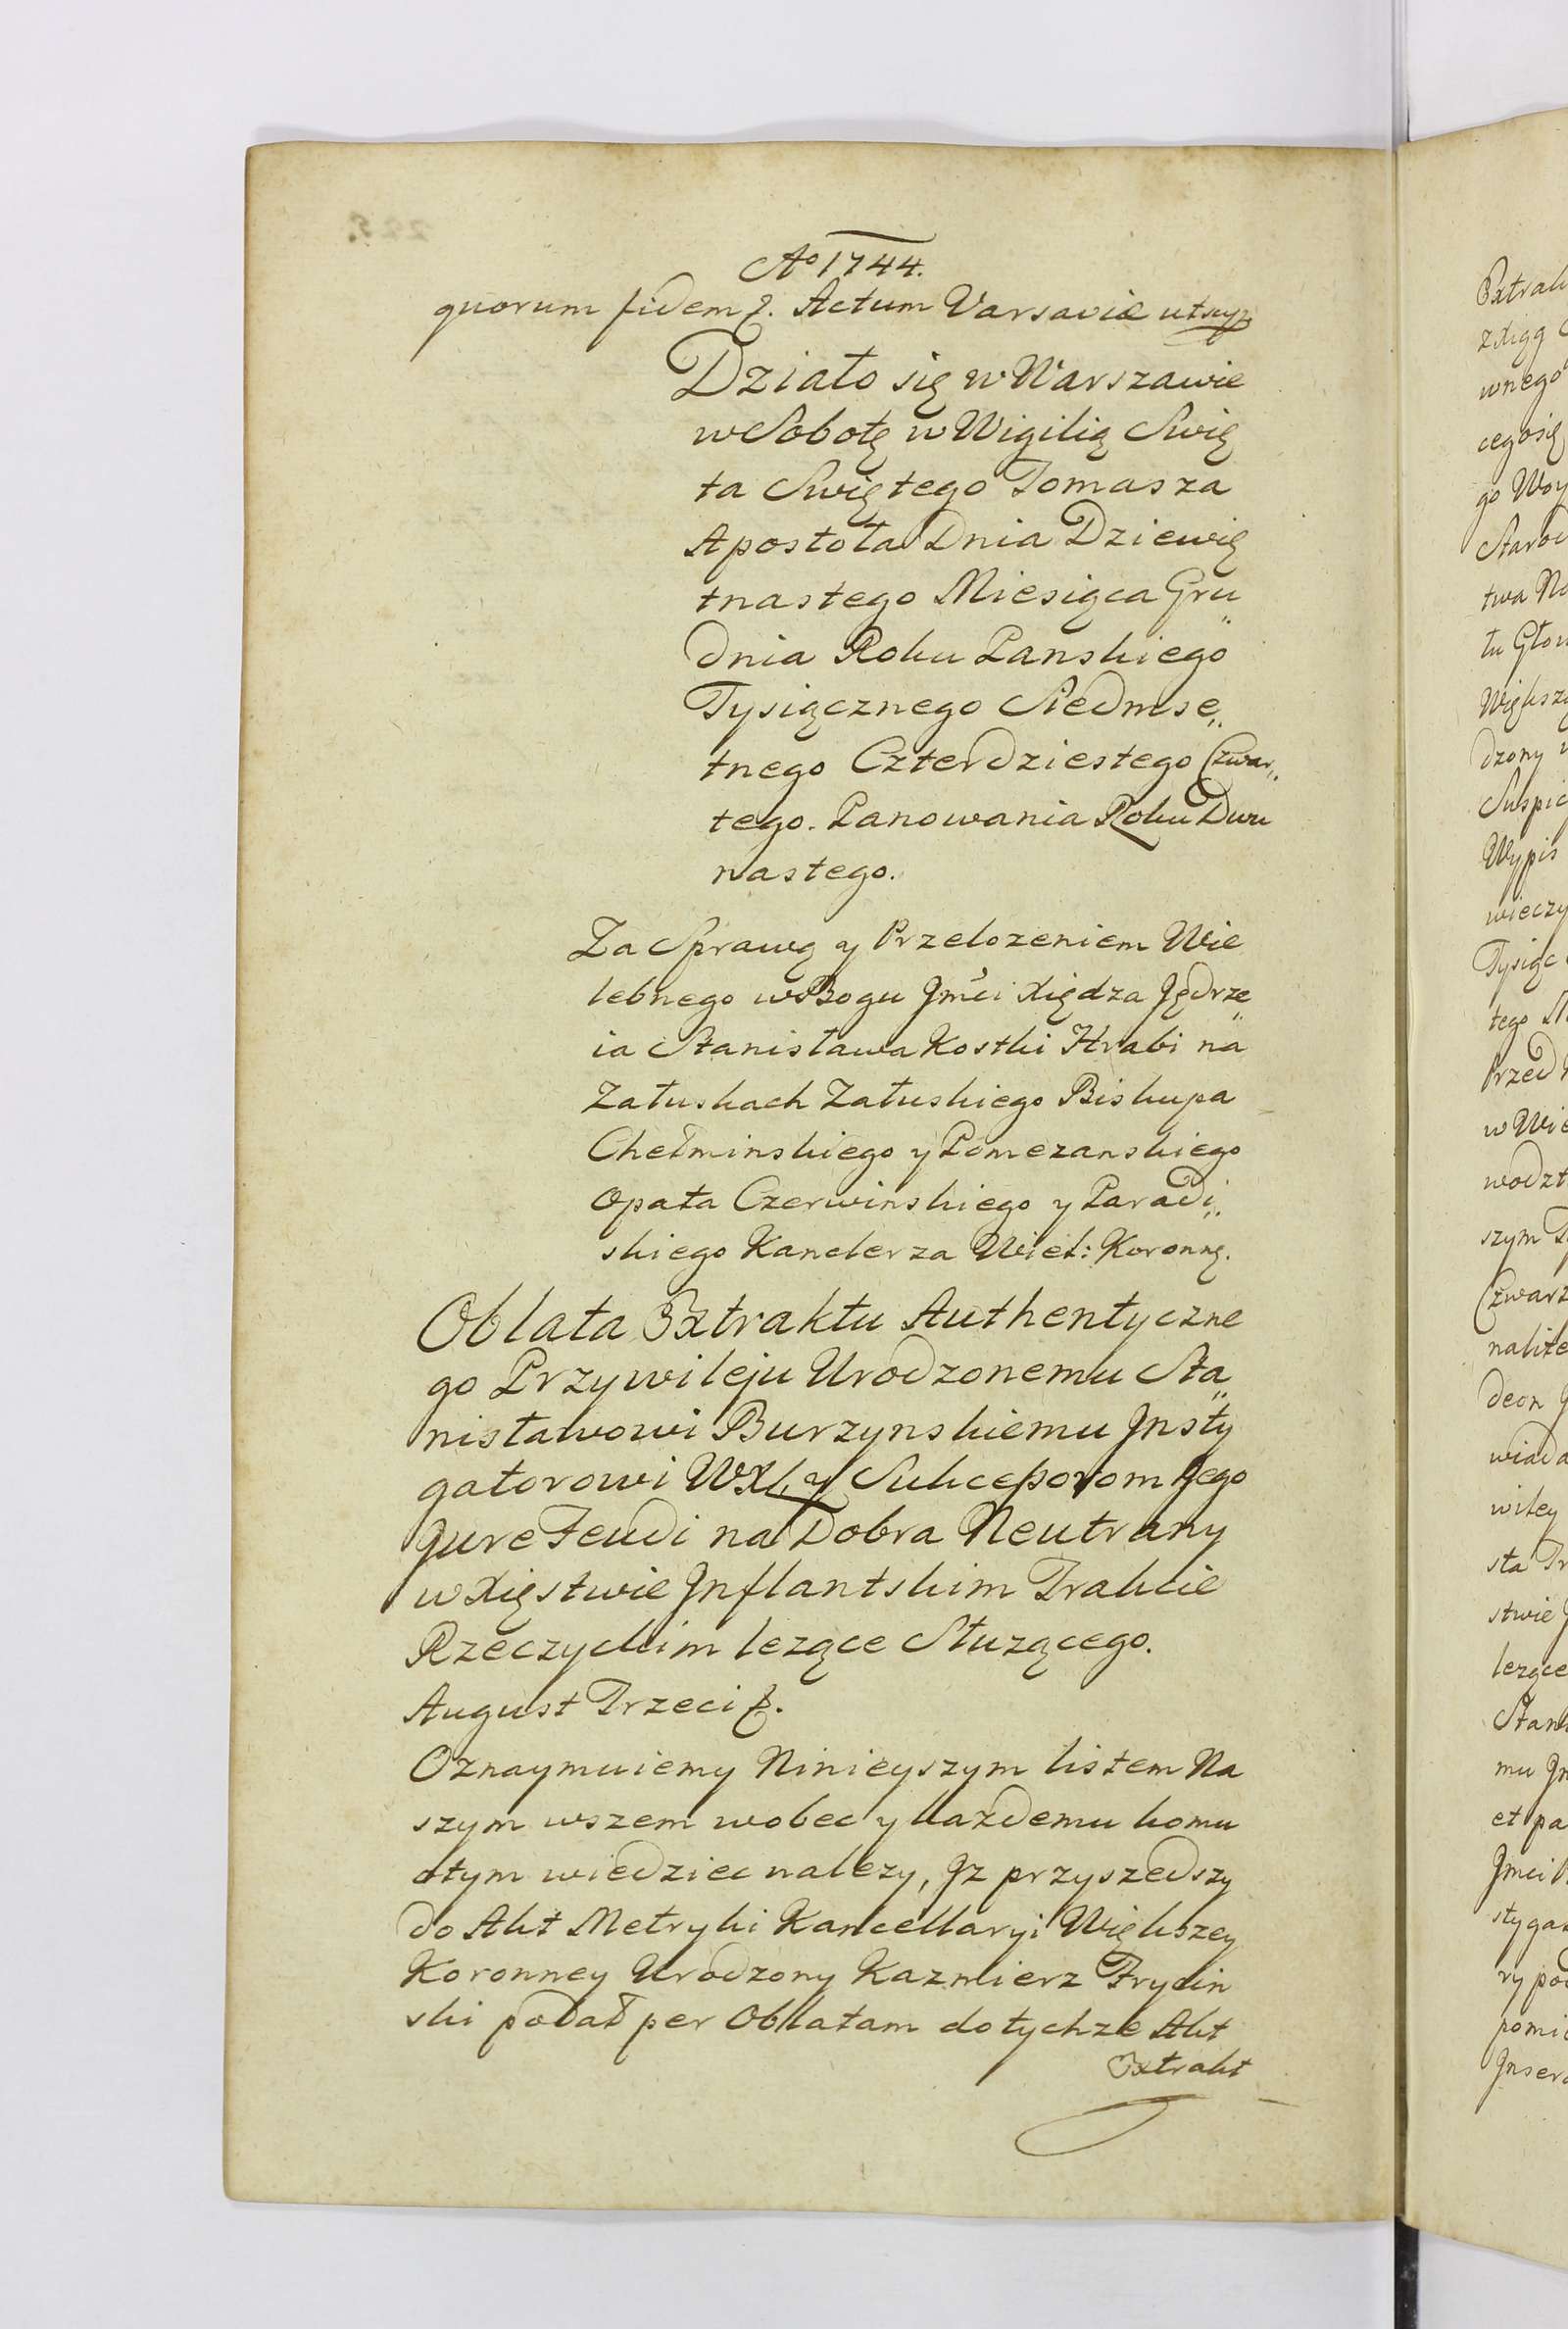 Aº 1744.
quorum fidem &. Actum Varsaviæ ut sup
Działo się w Warszawie
w Sobotę w Wigilią Swię
ta Swiętego Tomasza
Apostoła Dnia Dziewię
tnastego Miesiąca Gru„
dnia Roku Panskiego
Tysiącznego Siedmse„
tnego Czterdziestego Czwar„
tego. Panowania Roku Dwu
nastego.
Za Sprawą y Przelozeniem Wie
lebnego w Bogu Jmći Xiędza Jędrze„
ia Stanisława Kostki Hrabi na
Załuskach Załuskiego Biskupa
Chełminskiego y Pomezanskiego
Opata Czerwinskiego y Paradi„
skiego Kanclerza Wiel: Koronng.
Oblata Extraktu Authentyczne
go Przywileju Urodzonemu Sta„
nisławowi Burzynskiemu Jnsty
gatorowi WXL, y Sukcessorom Jego
Jure Feudi na Dobra Neutrany
w Xięstwie Jnflantskim Trakcie
Rzeczyckim lezące Słuzącego.
August Trzeci &.
Oznaymuiemy Ninieyszym listem Na
szym wszem wobec y kazdemu komu
otym wiedziec nalezy, Jz przyszedszy
do Akt Metryki Kancellaryi Większey
Koronney Urodzony Kazmierz Frycin
ski podał per Oblatam do tychze Akt
Extrakt
225.
Extrak
zXiąg
wnego
cegosię
go Woy
Starod
twa No
tu Głow
Większ
dzony
Suspic
Wypis
wieczy
Tysiąc
tego
Przed
w Wie
wodzt
szym
Czwarz
nalite
deon
wiada
wiley
sta
stwie
lezące
Stani
mu Jn
et pa
Jmci
stygat
ry pod
pomi
Jnser